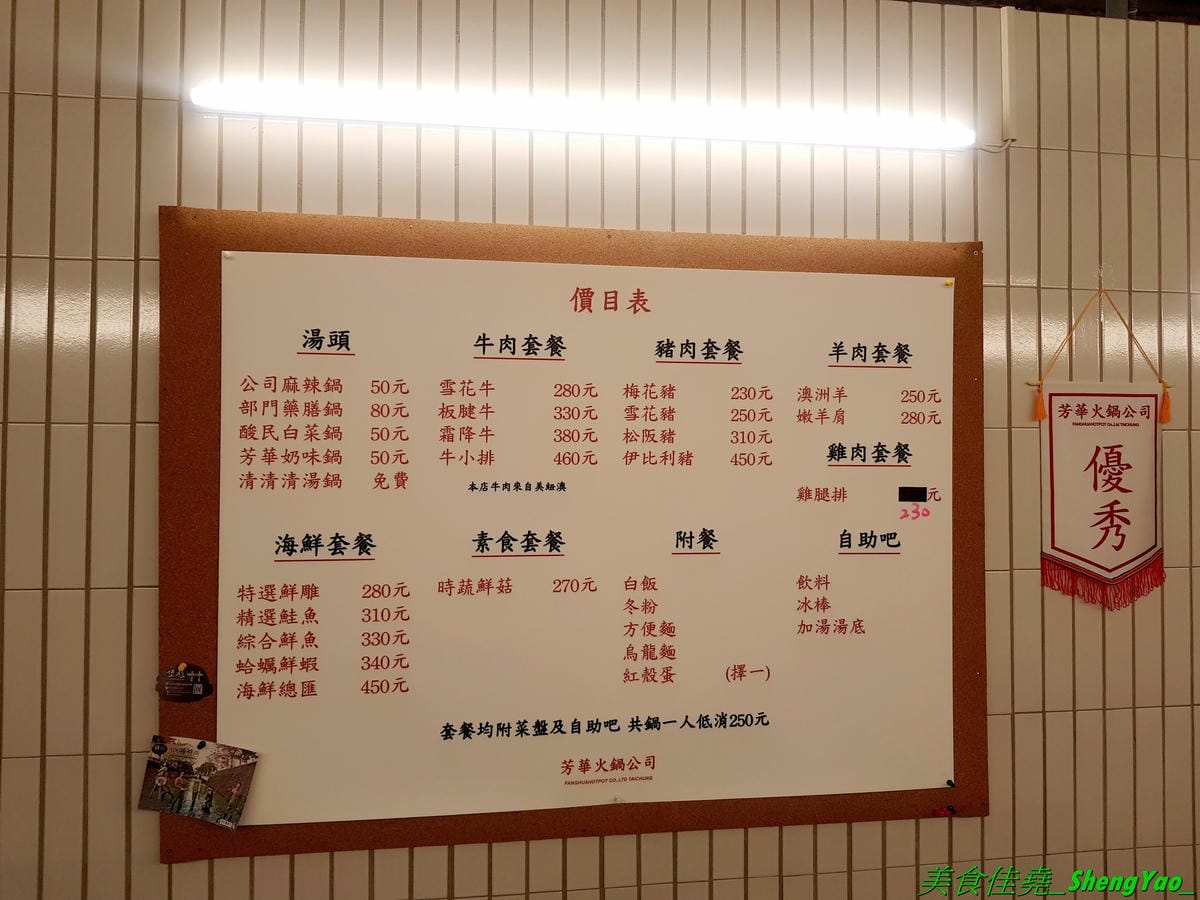 價目表
湯頭
公司麻辣鍋 50元
部門藥膳鍋 80元
酸民白菜鍋 50元
芳華奶味鍋 50元
清清清湯鍋 免費
牛肉套餐
雪花牛 280元
板腱牛 330元
霜降牛 380元
牛小排 460元
本店牛肉來自美紐澳
豬肉套餐
梅花豬 230元
雪花豬 250元
松阪豬 310元
伊比利豬 450元
羊肉套餐
澳洲羊 250元
嫩羊肩 280元
雞肉套餐
雞腿排 元
230
海鮮套餐
特選鮮雕 280元
精選鮭魚 310元
綜合鮮魚 330元
蛤蠣鮮蝦 340元
海鮮總匯 450元
素食套餐
時蔬鮮菇 270元
附餐
白飯
冬粉
方便麵
烏龍麵
紅殼蛋 (擇一)
自助吧
飲料
冰棒
加湯湯底
套餐均附菜盤及自助吧 共鍋一人低消250元
芳華火鍋公司
FANGHUAHOTPOT CO.,LTD TAICHUNG
芳華火鍋公司
FANGHUAHOTPOT CO.,LTD TAICHUNG
優秀
美食佳堯_ShengYao_